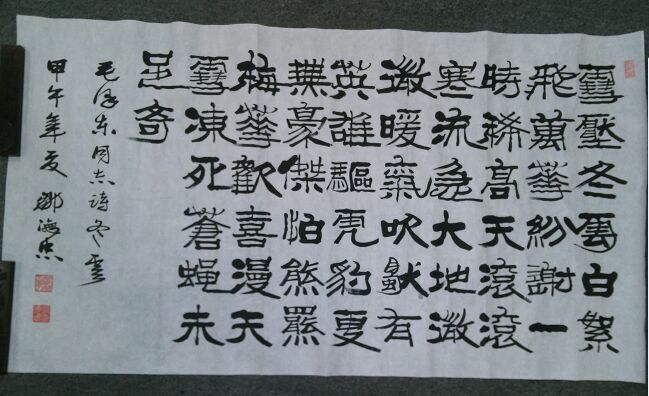 雪壓冬雲白絮
飛萬華紛謝一
時稀高天滾滾
寒流急大地微
微暖氣吹獨有
英雄驅虎豹更
無豪傑怕熊羆
梅華歡喜漫天
雪凍死蒼蠅未
足奇
毛泽东同志诗冬雲
甲午年夏 鄧海忠